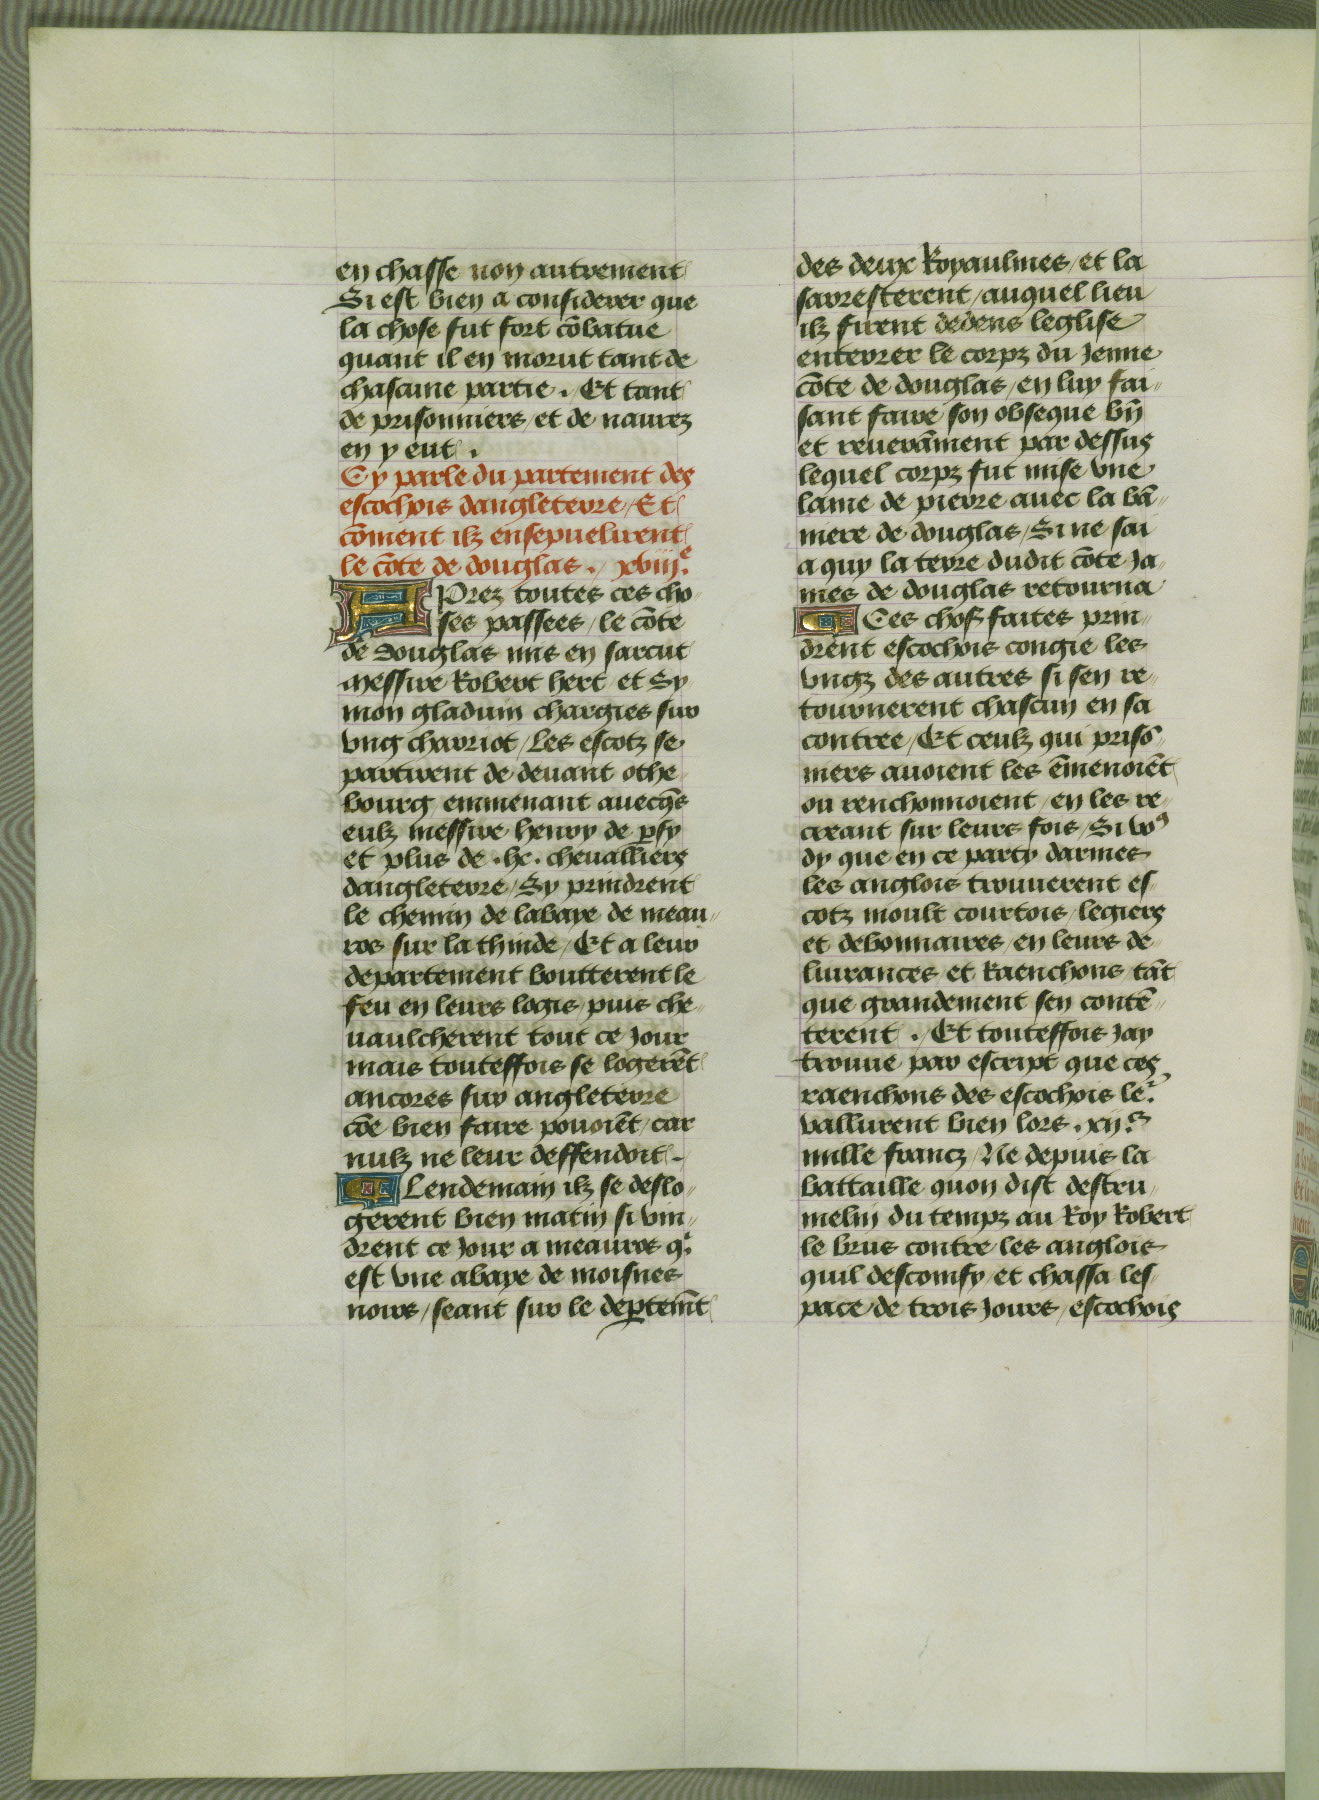 en chasse non autrement
Si est bien a considerer que
la chose fut fort cōbatue
quant il en morut tant de
chascune partie . Et tant
de prisonniers / et de naurez
en y eut .
Cy parle du partement des
escochois dangleterre / Et
cōment ilz ensepuelirent
le cōte de douglas . xviijͤ.
APrez toutes ces cho-
ses passees / le cōte
de douglas mis en sarcut
messire Robert hert et Sy
mon gladuin chargies sur
vng charriot / les escotz se
partirent de deuant othe
bourg emmenant auecq̄s
eulz messire henry de persy
et plus de .xl. cheualliers
dangleterre / Sy prindrent
le chemin de labaye de meau-
ros sur la thinde / Et a leur
departement boutterent le
feu en leurs logis / puis che-
uaulcherent tout ce Jour
mais touteffois se logerēt
ancores sur angleterre
cōe bien faire pouoiēt / car
nulz ne leur deffendoit .
Lendemain ilz se deslo-
gerent bien matin si vin-
drent ce Jour a meauros qͥ
est vne abaye de moisnes
noirs / seant sur le deptemt̄
des deux Royaulmes / et la
sarresterent / auquel lieu
ilz firent dedens leglise
enterrer le corpz du Jenne
cōte de douglas / en luy fai-
sant faire son obseque bn̄
et reuerāment par dessus
lequel corpz fut mise vne
lame de pierre auec la bā-
niere de douglas / Si ne sai
a quy la terre dudit cōte Ja-
mes de douglas retourna
Ces chos̄ faites prin-
drent escochois congie les
vngz des autres si sen re-
tournerent chascun en sa
contree / Et ceulz qui prisō-
niers auoient les ēmenoiēt
ou renchonnoient / en les re-
creant sur leurs fois / Si voꝰ
dy que en ce party darmes
les anglois trouuerent es-
cotz moult courtois / legiers
et debonnaires / en leurs de-
liurances et Raenchons / tāt
que grandement sen contē-
terent . Et touteffois Jay
trouue par escript que ces
raenchons des escochois leͬ
vallurent bien lors .xijͨ.
mille francz / Ne depuis la
battaille quon dist destru-
melin du tempz au Roy Robert
le brus contre les anglois
quil descomfy / et chassa les-
pace de trois Jours / escochois